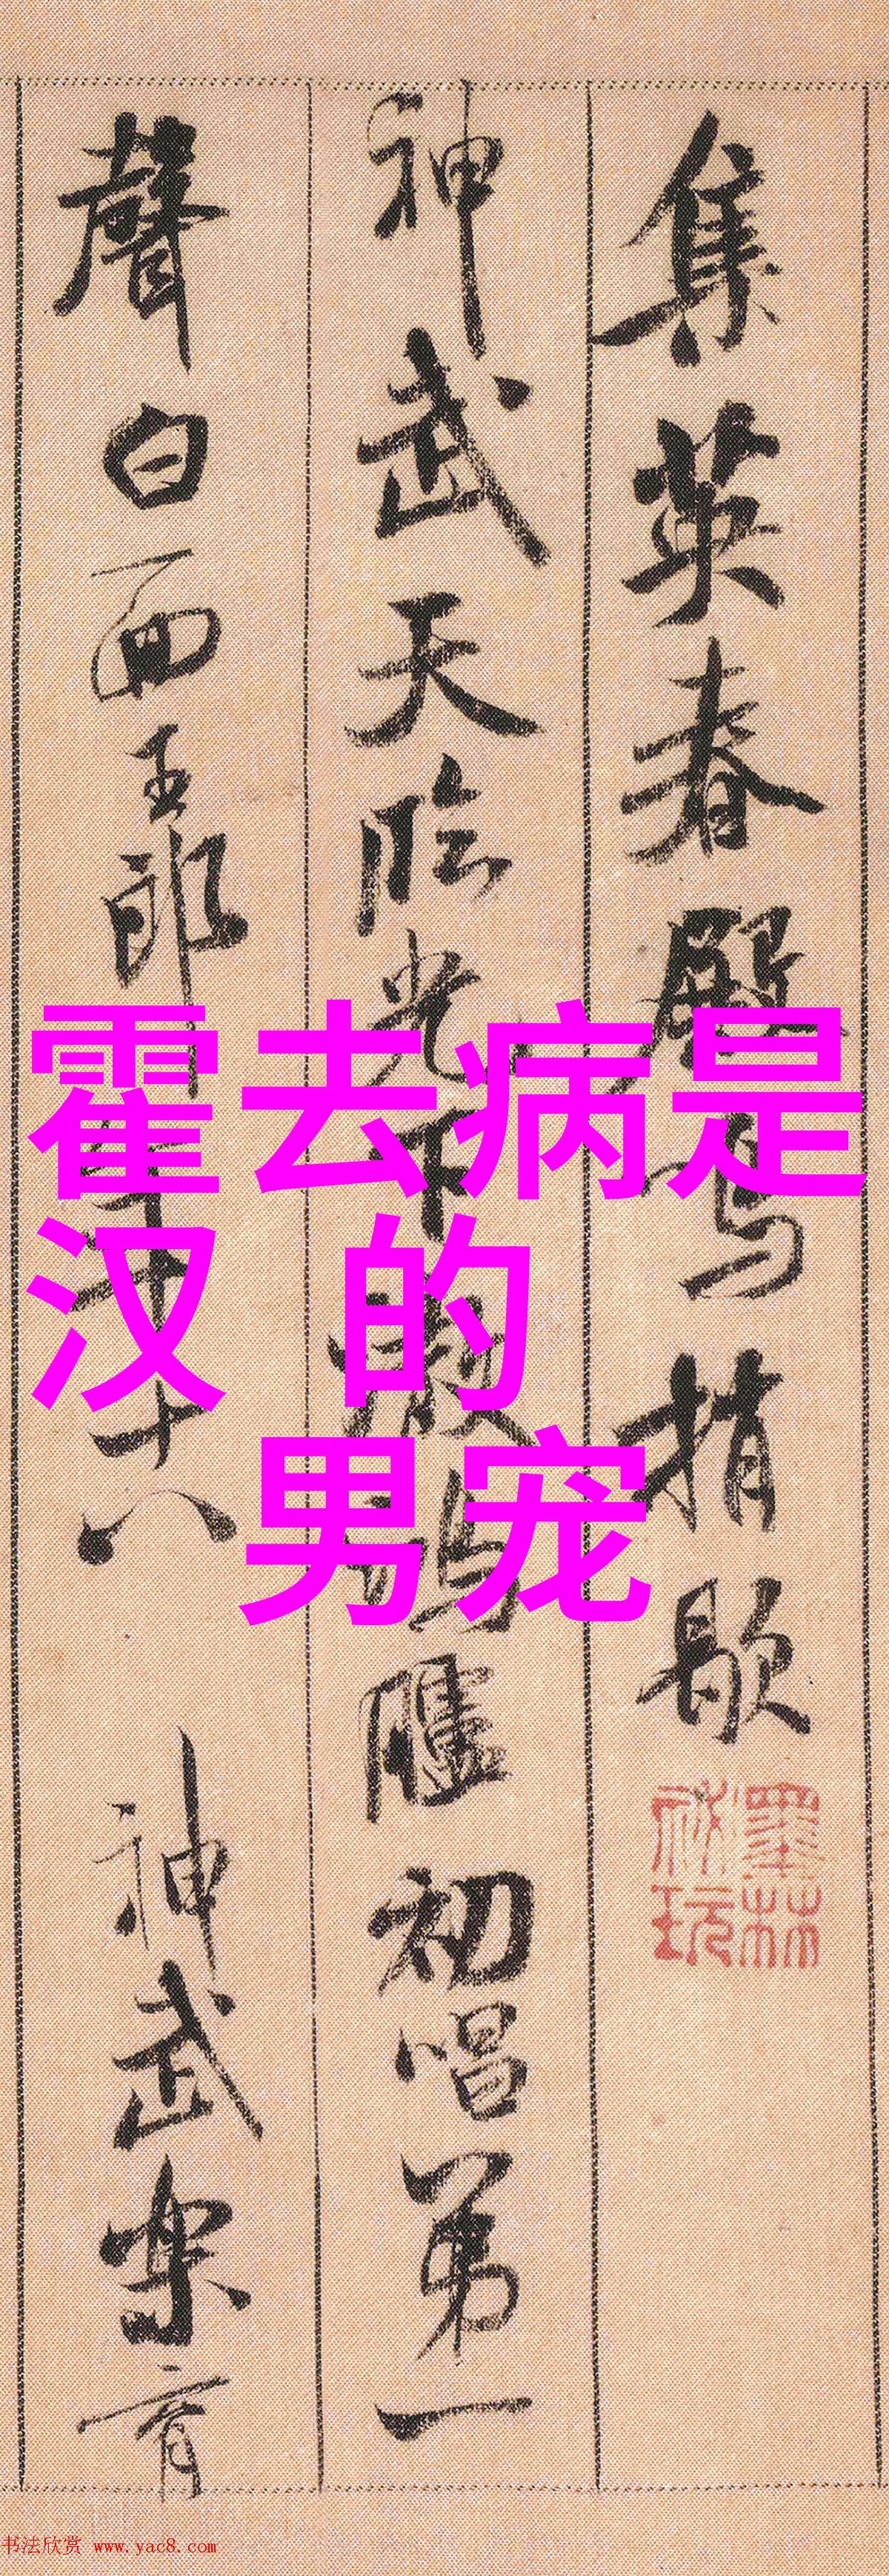 集英春殿鳴捎歇
神武天臨光下澈鴻臚初唱第一
聲白面王郎年十八 神武樂育
霍去病是
汉 的
男宠
墨林
祕玩
书法欣赏 www.yac8.com